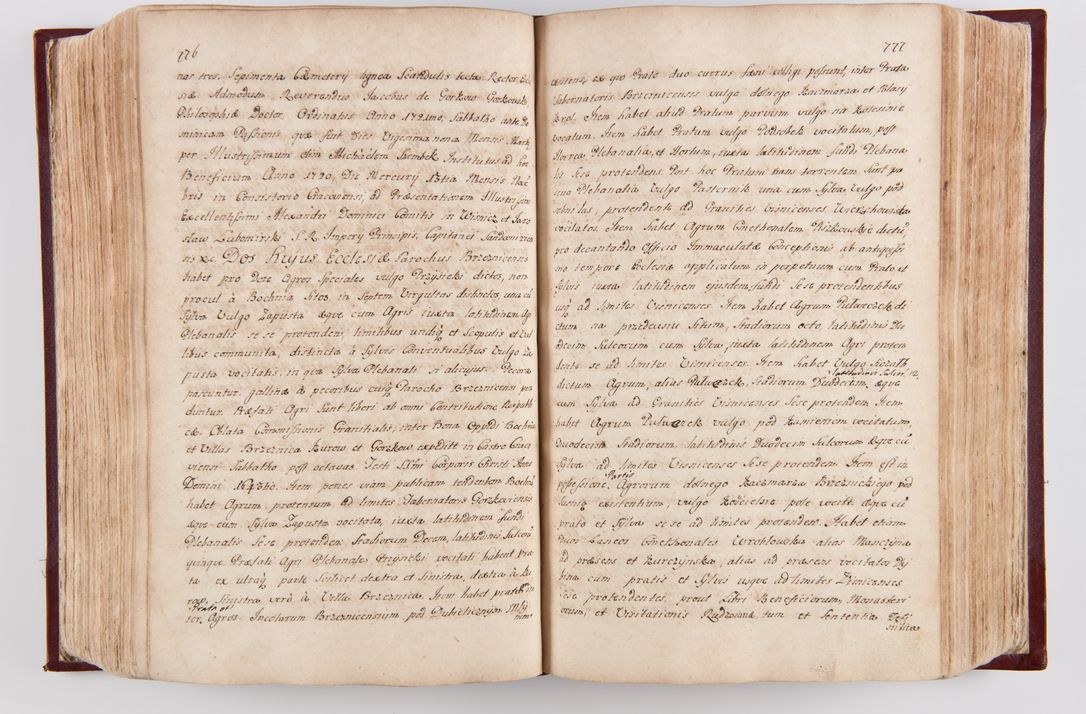 776
nas tres. Sepimenta Cæmeterij lignea Scandulis tecta. Rector Eccle
siæ Admodum Reverendus Jacobus de Gorkow Gorkowski
Philosophiæ Doctor, Ordinatus Anno 1721mo, Sabbatho ante Do
minicam Passionis, quæ fuit Dies Vigesima nona Mensis Martij
per Illustrissimum olim Michäelem Szembek Institutus ad hoc
Beneficium Anno 1720, Die Mercurij 13tia Mensis
bris in Consistorio Cracoviensi, ad Præsentationem Illustrissimi
Excellentissimi Alexandri Dominici Comitis in Wisnicz et Jaro
slaw Lubomirski S. R. Imperij Principis, Capitanei Sandomirien
sis &c. Dos Hujus Ecclesiæ Parochus Brzeznicensis
habet pro Dote Agros Speciales vulgo Przÿsieki dictos, non
procul à Bochnia sitos, in Septem Virgultas distinctos, una cũ
Sylva Vulgo Zapusta æque cum Agris iuxta latitudinem
Plebanalis se se protenden. limitibus undiq et Scopulis et
libus communita, distincta à Sylvis Conventualibus Vulgo Za
pusta vocitatis, in qua Sylva Plebanali si alicujus Pecora
pascuntur, gallina à pecoribus cuiq Parocho Brzeznicensi pen
duntur. Præfati Agri Sunt liberi ab omni Contributione, Reipubli
cæ. Oblata Commissionis Granitialis, inter Bona Opidi Bochnia
et Villas Brzeznica Kurow et Gorzkow expedit in Castro Craco
viensi Sabbatho post octavas Festi SSmi Corporis Christi Anno
Domini Item penes viam publicam tendentem Bochnia
habet Agrum, protensum ad limites Tabernatoris Gorzkoviensis
æque cum Sylva Zapusta vocitata, iuxta latitudinem fundi
Plebanalis Sese protenden. Stadiorum Decem, latitudinis Sulcorũ
quinque. Præfati Agri Plebanales Przÿsieki vocitati habent Pra
ta ex utraq parte Scilicet dextra et Sinistra, dextra à Ku
row, Sinistra verò à Villa Brzeznica. Item habet pratũ in
Prato et
ter Agros Incolarum Brzeznicensium pod Dubielicznym Mły
nem
777
existens, ex quo Prato duo currus fæni colligi possunt, inter Prata
Tabernatoris Brzeznicensis vulgo dolnego Kaczmarza et Blasij
Krol. Item habet aliud Pratum parvum vulgo na Kolesinie
vocatum. Item habet Pratum vulgo Podrobek vocitatum, post
Horrea Plebanalia, et Hortum, iuxta latitudinem fundi Plebana
lis Sese protendens. Post hoc Pratum trans torrentem Sunt pa
scua Plebanalia Vulgo Pasternik una cum Sylva Vulgo pod
sobni las, protendente ad Granities Visnicenses Wierzchowiska
vocitatos. Item habet Agrum Cmethonalem Piżkowskie dictũ
pro decantando Officio Immaculatæ Conceptionis ab antiquissi
mo tempore Ecclesiæ applicatum in perpetuum cum Prato et
Sylvis iuxta latitudinem ejusdem fundi Sese protendentibus
usq ad limites Visnicenses. Item habet Agrum Pulweczek di
ctum na przedcusiu Situm, Stadiorum octo, latitudinis Du
odecim Sulcorum cum Sylva, iuxta latitudinem Agri proten
dente se ad limites Visnicenses. Item habet Vulgo
latitudinis Sulcor. 12.
dictum Agrum, alias Pulweczek, Stadiorum Duodecim, æque
cum Sylva ad Granities Visnicenses Sese protenden. Item
habet Agrum Pulweczek vulgo pod Kamieniem vocitatum,
Duodecim Stadiorum, latitudinis Duodecim Sulcorum æque cũ
Sylva ad limites Visnicenses Sese protenden. Item est in
Partis
possessione Agrorum dolnego Kaczmarza Brzeznickiego pod
existentium, vulgo Koscielne pole vocit. æque cũ
prato et Sylva se se ad limites protenden. Habet etiam
duos Laneos Cmethonales Wrobłowska alias Masczyna
ad præsens et Kurczynska, alias ad præsens vocitatos Dy
bina cum pratis et Sylvis usque ad limites Visnicenses
Sese protendentes, prout Libri Beneficiorum, Monasteri
orum, et Visitationis Radziviana, tum et Sententia Defi
nitiva